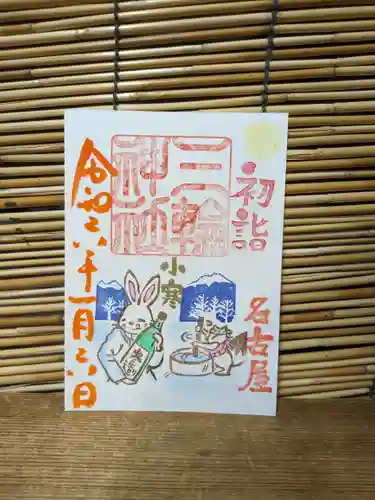 初詣
名古屋
三輪
神社
小寒
令和六年一月六日